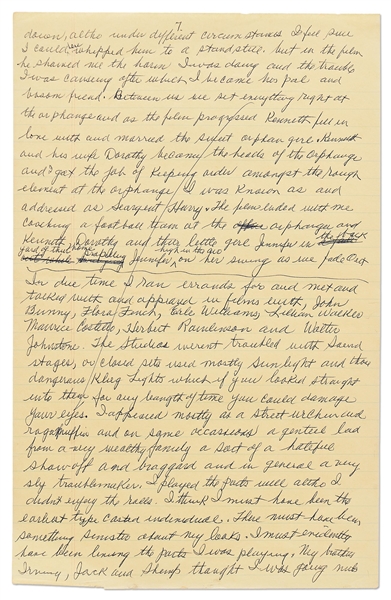 7
down, altho under different circumstances I feel sure
I could've whipped him to a standstill. but in the film
he showed me the harm I was doing and the trouble
I was causing after which I became his pal and
bosom friend. Between us we set everything right at
the orphange and as the film progressed Kenneth fell in
love with and married the sweet orphan girl. Kenneth
and his wife Dorothy became the heads of the orphange
and I got the job of keeping order amongst the rough
element at the orphange. I was known as and
addressed as Seargent Harry. The film ended with me
coaching a football team at the orphange and
Kenneth, Dorothy and their little girl Jennifer in the back
yard of their home propelling Jennifer high in the air on her swing as we fade out
In due time I ran errands for and met and
talked with and appeared in films with, John
Bunny, Flora Finch, Earle Williams, Lillian Walker
Maurice Costello, Herbert Rawlinson and Walter
Johnstone. The Studios werent troubled with Sound
stages, or closed sets used mostly Sunlight and those
dangerous Kleig Lights which if you looked straight
into them for any length of time you could damage
your eyes. I apposed mostly as a street urchin and
ragmuffin and on some occassions a genteel lad
from a very wealthy family a sort of a hateful
show off and braggard and in general a very
sly troublemaker. I played the parts well altho I
didnt enjoy the roles. I think I must have been the
earliest type casted individual. There must have been
something sinister about my looks. I must evidently
have been living the parts I was playing, My brothers
Irving, Jack and Shemp thought I was going nuts